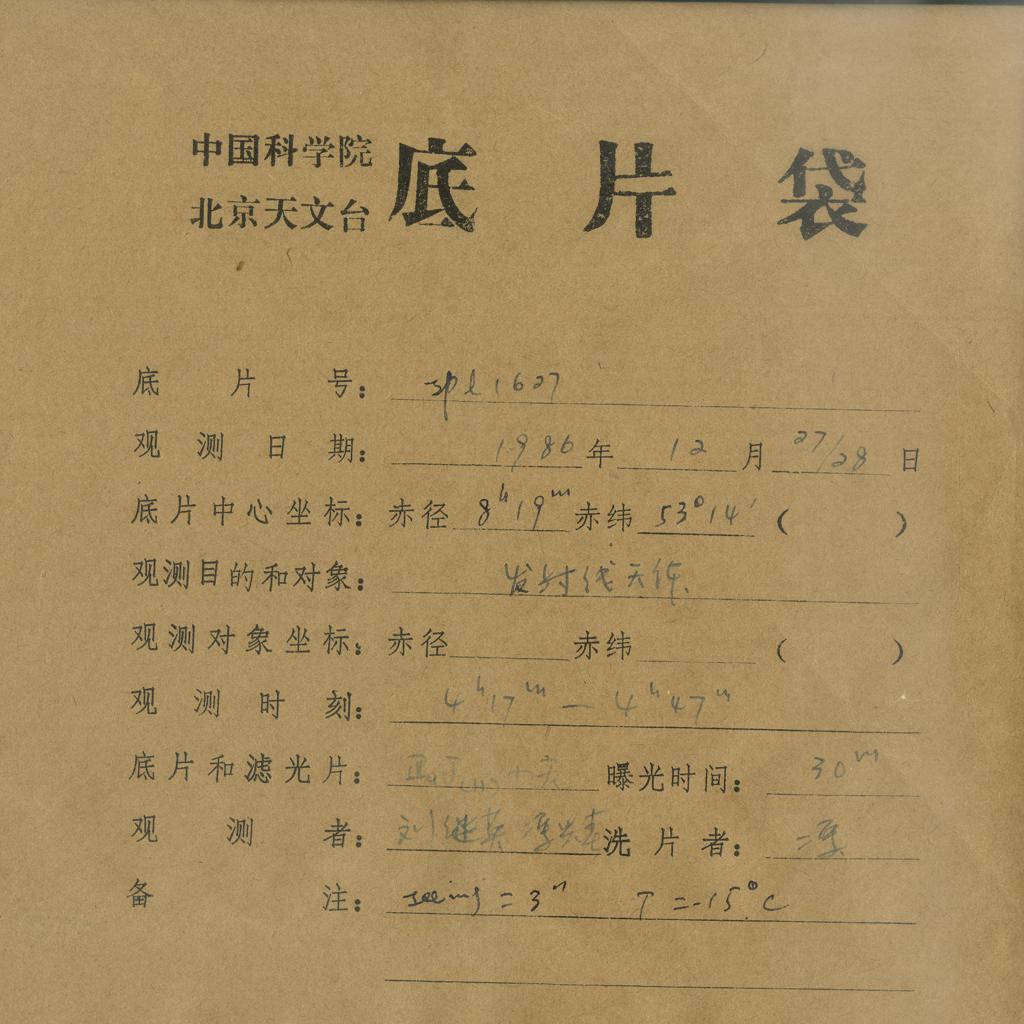 中国科学院
北京天文台
底片袋
底片号: spl1627
观测日期: 1986年12月27/28日
底片中心坐标: 赤径 8h19m 赤纬 53°14′ ( )
观测目的和对象: 发射线天体
观测对象坐标: 赤径 赤纬 ( )
观测时刻: 4h17m — 4h47m
底片和滤光片: 曝光时间: 30m
观测者: 刘继英 洗片者:
备注: seeing = 3" T = -15°C